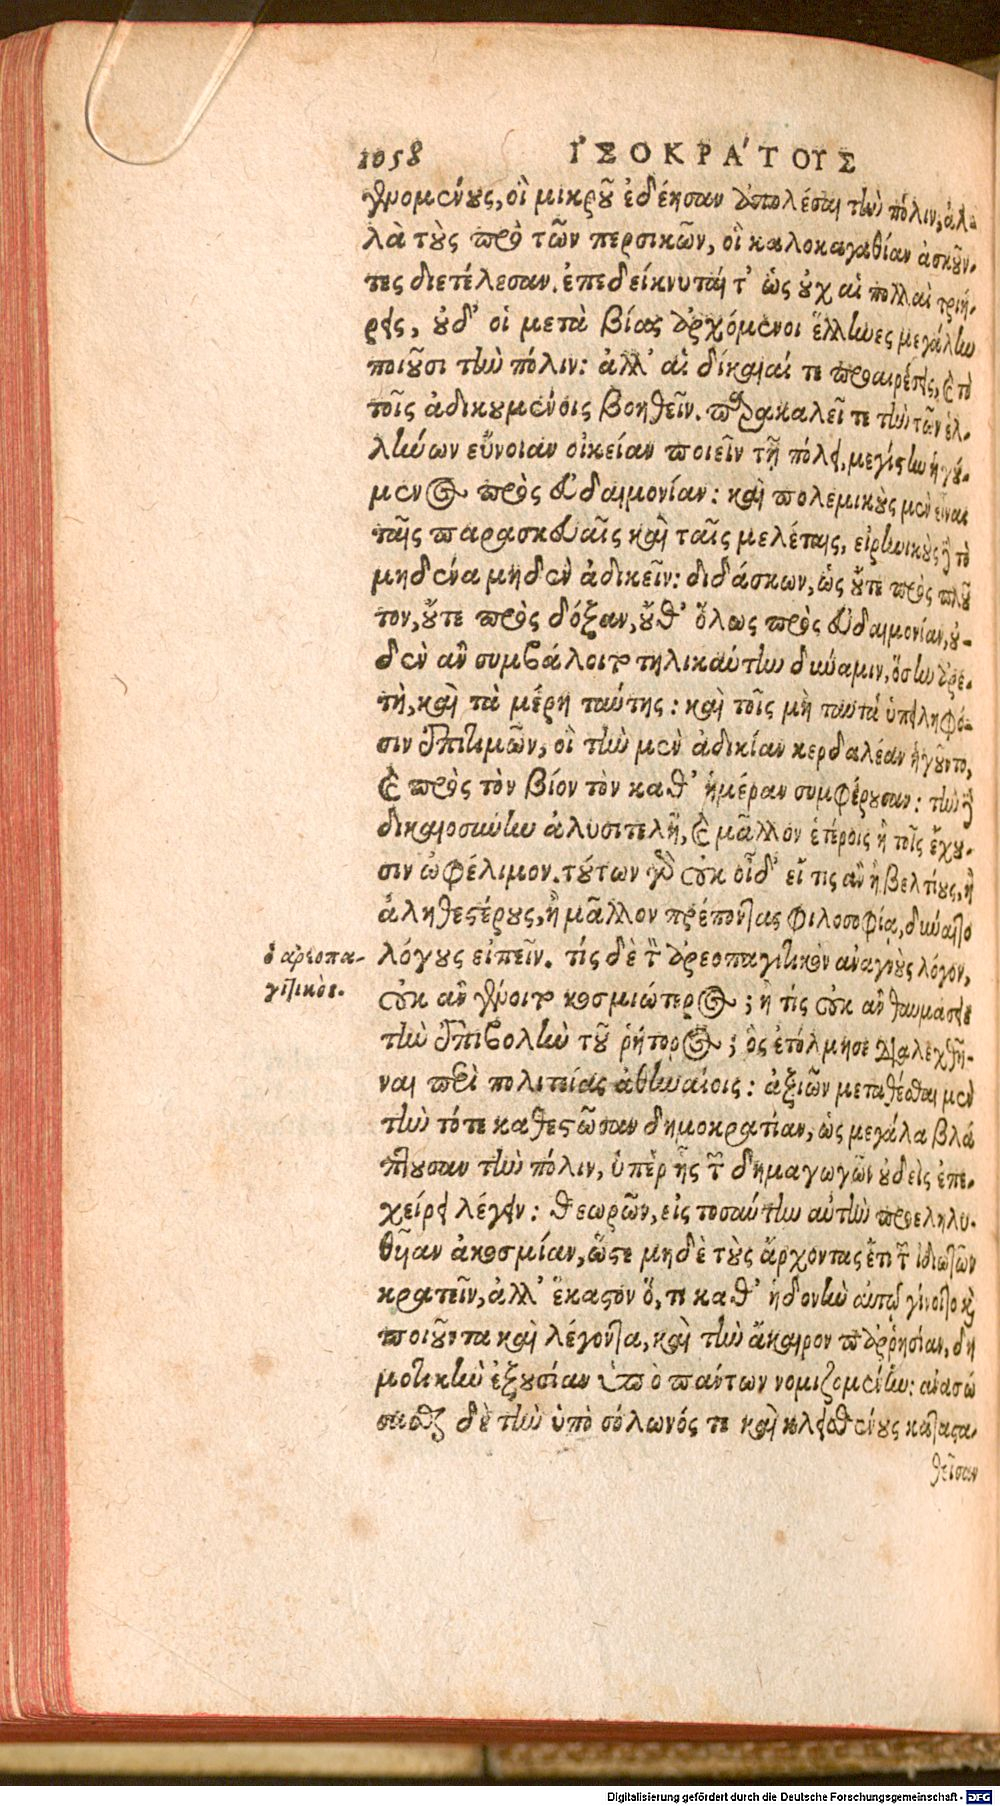 1058 ἸΣΟΚΡΆΤΟΥΣ
γενομένους, οἳ μικροῦ ἐδέησαν ἀπολέσαι τὴν πόλιν, ἀλ-
λὰ τοὺς πρὸ τῶν περσικῶν, οἳ καλοκαγαθίαν ἀσκοῦν-
τες διετέλεσαν. ἐπεδείκνυταί τ' ὡς οὐχ αἱ πολλαὶ τριή-
ρεις, οὐδ' οἱ μετὰ βίας ἀρχόμενοι ἕλληνες μεγάλην
ποιοῦσι τὴν πόλιν: ἀλλ' αἱ δίκαιαί τε προαιρέσεις, καὶ τὸ
τοῖς ἀδικουμένοις βοηθεῖν. παρακαλεῖ τε τὴν τῶν ἑλ-
λήνων εὔνοιαν οἰκείαν ποιεῖν τῇ πόλει, μεγίστην ἡγού-
μενος πρὸς εὐδαιμονίαν: καὶ πολεμικοὺς μὲν εἶναι
ταῖς παρασκευαῖς καὶ ταῖς μελέταις, εἰρηνικοὺς δὲ τὸ
μηδένα μηδὲν ἀδικεῖν: διδάσκων, ὡς οὔτε πρὸς πλοῦ
τον, οὔτε πρὸς δόξαν, οὔθ' ὅλως πρὸς εὐδαιμονίαν, οὐ-
δὲν ἂν συμβάλοιτο τηλικαύτην δύναμιν, ὅσην ἀρε-
τὴ, καὶ τὰ μέρη ταύτης: καὶ τοῖς μὴ ταῦτα ὑπειληφό-
σιν ἐπιτιμῶν, οἳ τὴν μὲν ἀδικίαν κερδαλέαν ἡγοῦντο,
καὶ πρὸς τὸν βίον τὸν καθ' ἡμέραν συμφέρουσαν: τὴν δὲ
δικαιοσύνην ἀλυσιτελῆ, καὶ μᾶλλον ἑτέροις ἢ τοῖς ἔχου-
σιν ὠφέλιμον. τούτων γὰρ οὐκ οἶδ' εἴ τις ἂν ἢ βελτίους, ἢ
ἀληθεστέρους, ἢ μᾶλλον πρέποντας φιλοσοφίᾳ, δύναιτο
λόγους εἰπεῖν. τίς δὲ τὸν ἀρεοπαγιτικὸν ἀναγνοὺς λόγον,
ὁ ἀρεοπα-
γιτικὸς.
οὐκ ἂν γένοιτο κοσμιώτερος; ἢ τίς οὐκ ἂν θαυμάσειε
τὴν ἐπιβολὴν τοῦ ῥήτορος; ὃς ἐτόλμησε διαλεχθῆ-
ναι περὶ πολιτείας ἀθηναίοις: ἀξιῶν μεταθέσθαι μὲν
τὴν τότε καθεστῶσαν δημοκρατίαν, ὡς μεγάλα βλά
πτουσαν τὴν πόλιν, ὑπὲρ ἧς τῶν δημαγωγῶν οὐδεὶς ἐπε-
χείρει λέγειν: θεωρῶν, εἰς τοσαύτην αὐτὴν προεληλυ-
θῆαν ἀκοσμίαν, ὥστε μηδὲ τοὺς ἄρχοντας ἔτι τῶν ἰδιωτῶν
κρατεῖν, ἀλλ' ἕκαστον ὅ, τι καθ' ἡδονὴν αὐτῷ γίνοιτο καὶ
ποιοῦντα καὶ λέγοντα, καὶ τὴν ἄκαιρον παρρησίαν, δη
μοτικὴν ἐξουσίαν ὑπὸ πάντων νομιζομένην: ἀνασώ
σασθαι δὲ τὴν ὑπὸ σόλωνός τε καὶ κλεισθένους καταστα-
θεῖσαν
Digitalisierung gefördert durch die Deutsche Forschungsgemeinschaft - DFG